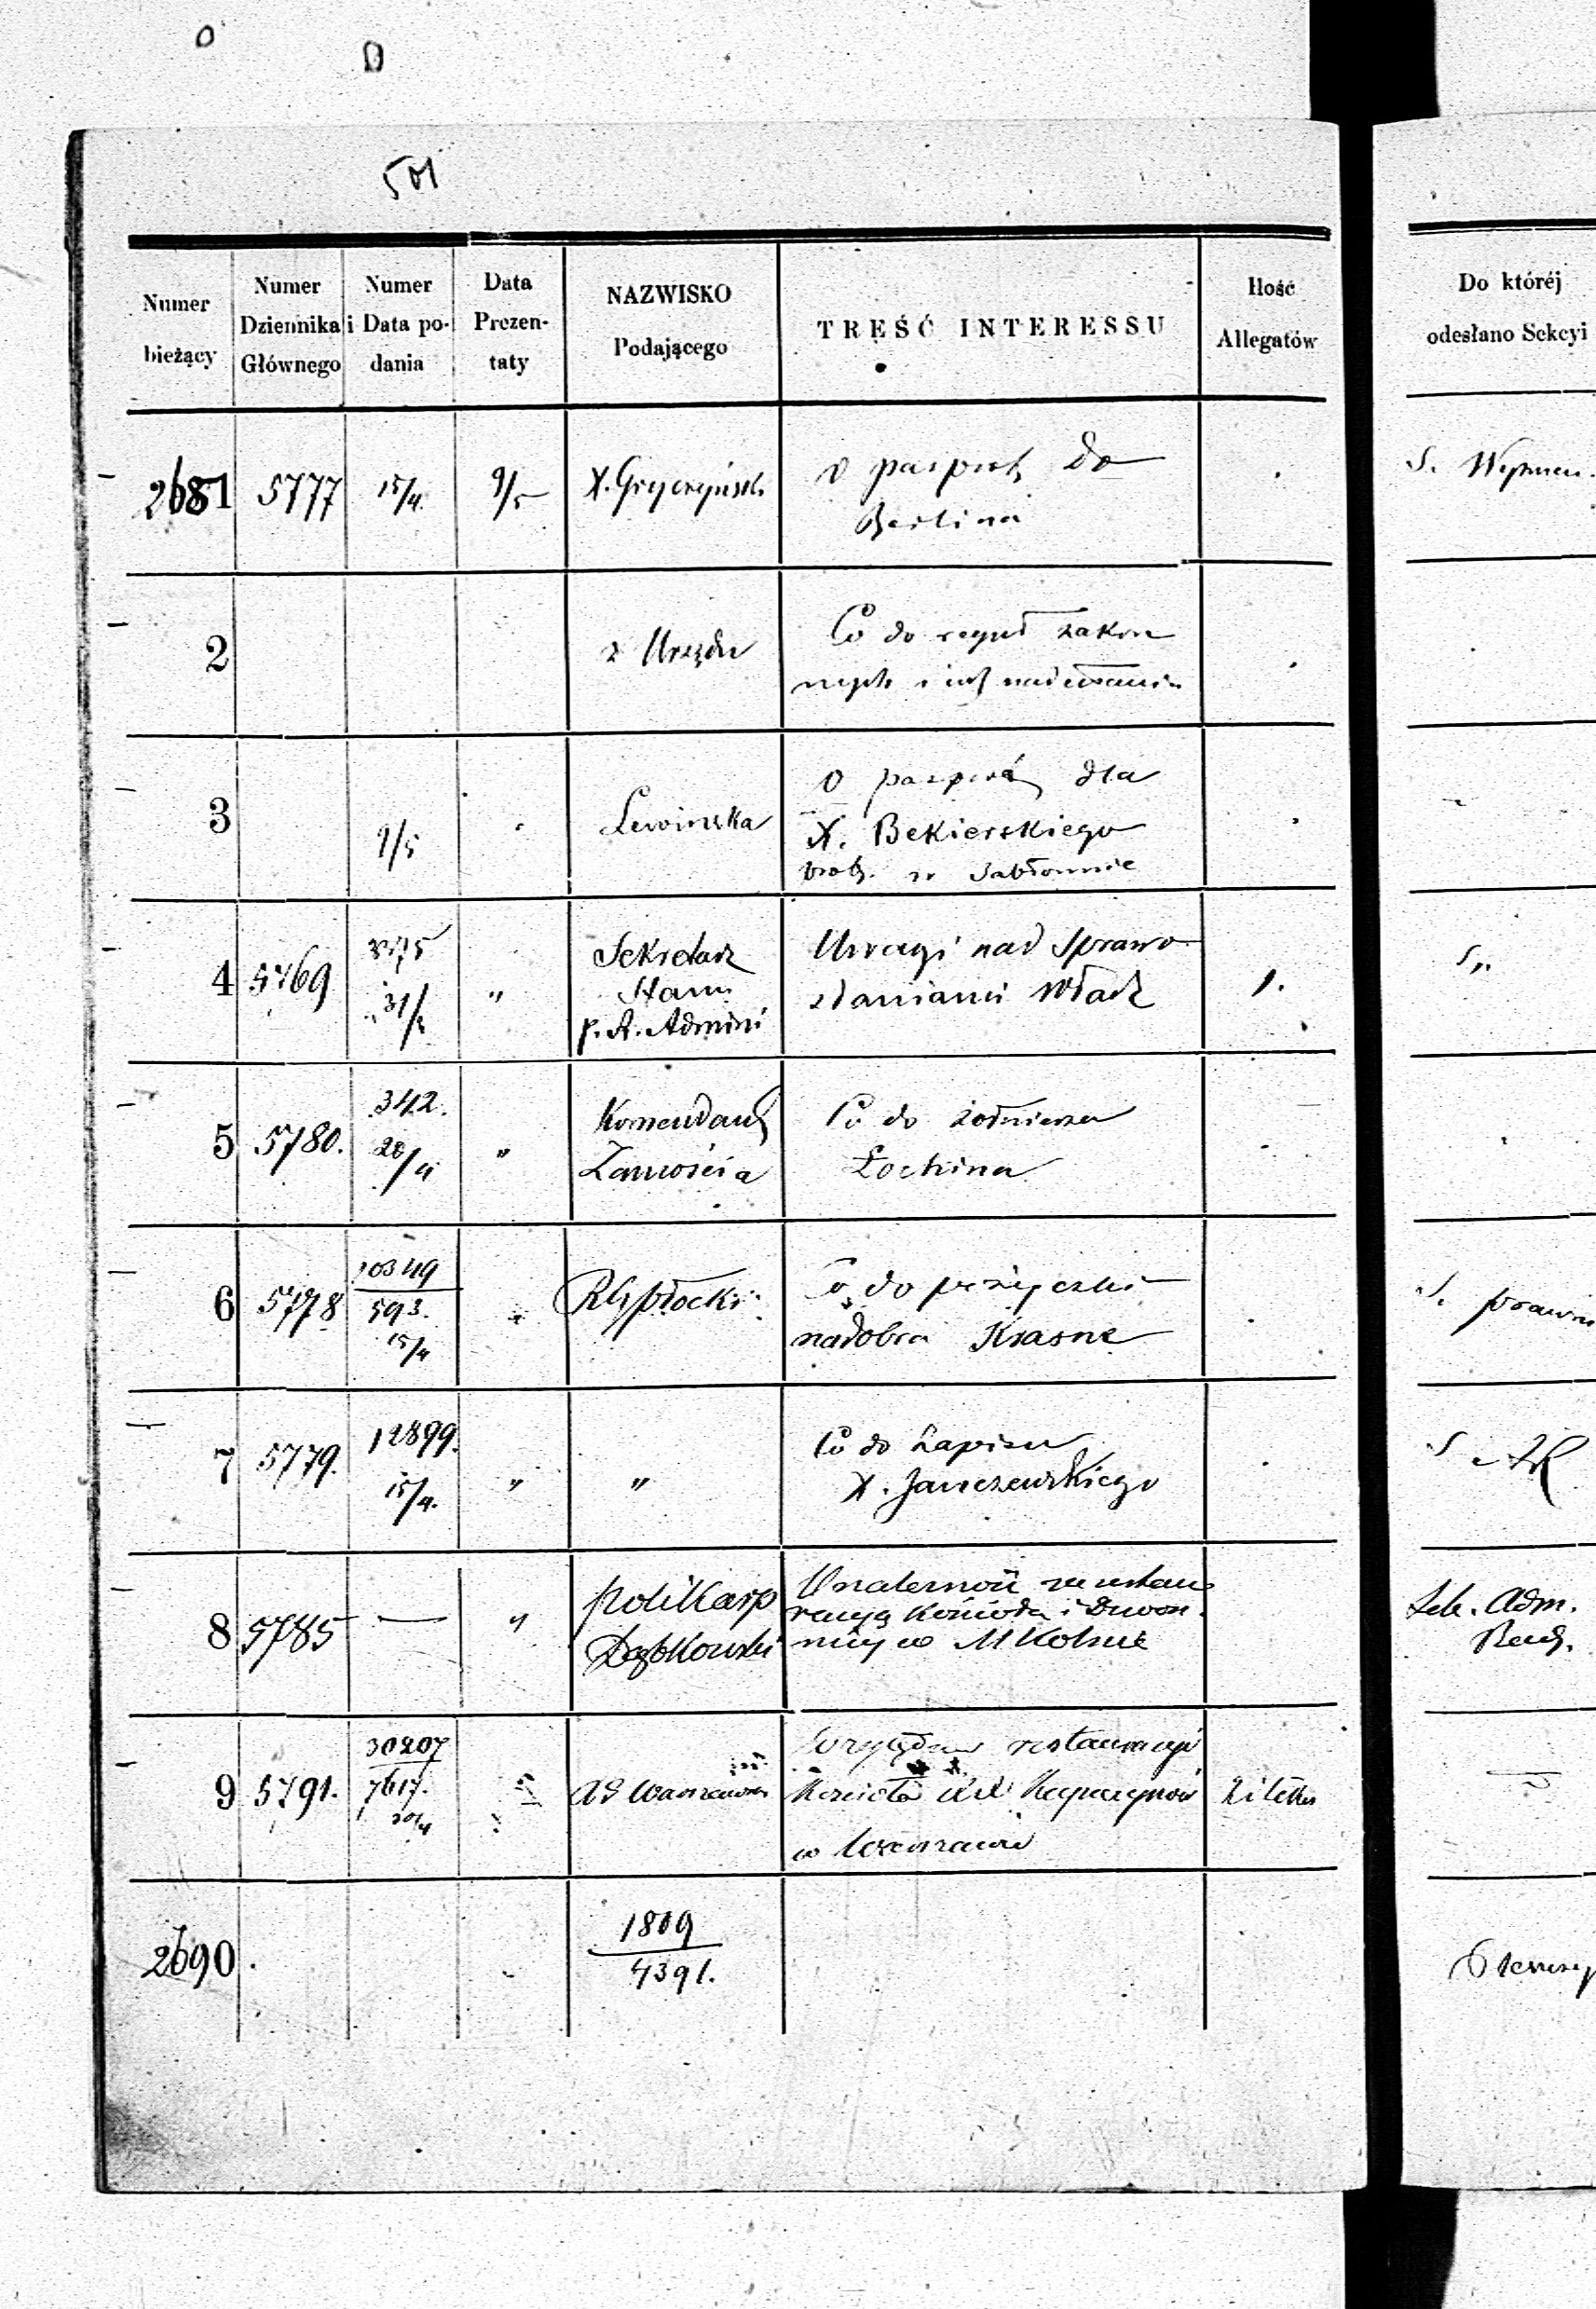 501
Numer bieżący
Numer Dziennika Głównego
Numer i Data podania
Data Prezentaty
NAZWISKO Podającego
TREŚĆ INTERESSU
Ilość Allegatów
Do któréj odesłano Sekcyi
2681 5777 15/4 9/5 X. Gryczyński O paszport do
Berlina
S. Wyznań
2 z Urzędu Co do reguł zakon
nych i ich
3 9/5 Lewińska O paszport dla
X. Bekierskiego
prob. w Jabłonnie
4 5769 31/3 " Sekretarz
Stanu
p. A. Admini
Uwagi nad Sprawo
zdaniami Władz
1.
5 5780. 342. 20/4 " Komendant
Zamościa
Co do żołnierza
Łochina
6 5778 10349
593.
15/4
RG płocki Co do pożyczki
na dobra Krasne
S. prawn
7 5779. 12899. 15/4. " " Co do Zapisu
X. Janczewskiego
S
8 5785 — " Polikarp
Dąbkowski
restau
racyą Kościoła i Dzwon
nicy w M Kolnie
Sek. Adm.
Rach.
9 5791. 30207
7617.
20/4
RG Warszawski
restauracyi
Kościoła XX Kapucynów
w Warszawie
2690. 1809
4391.